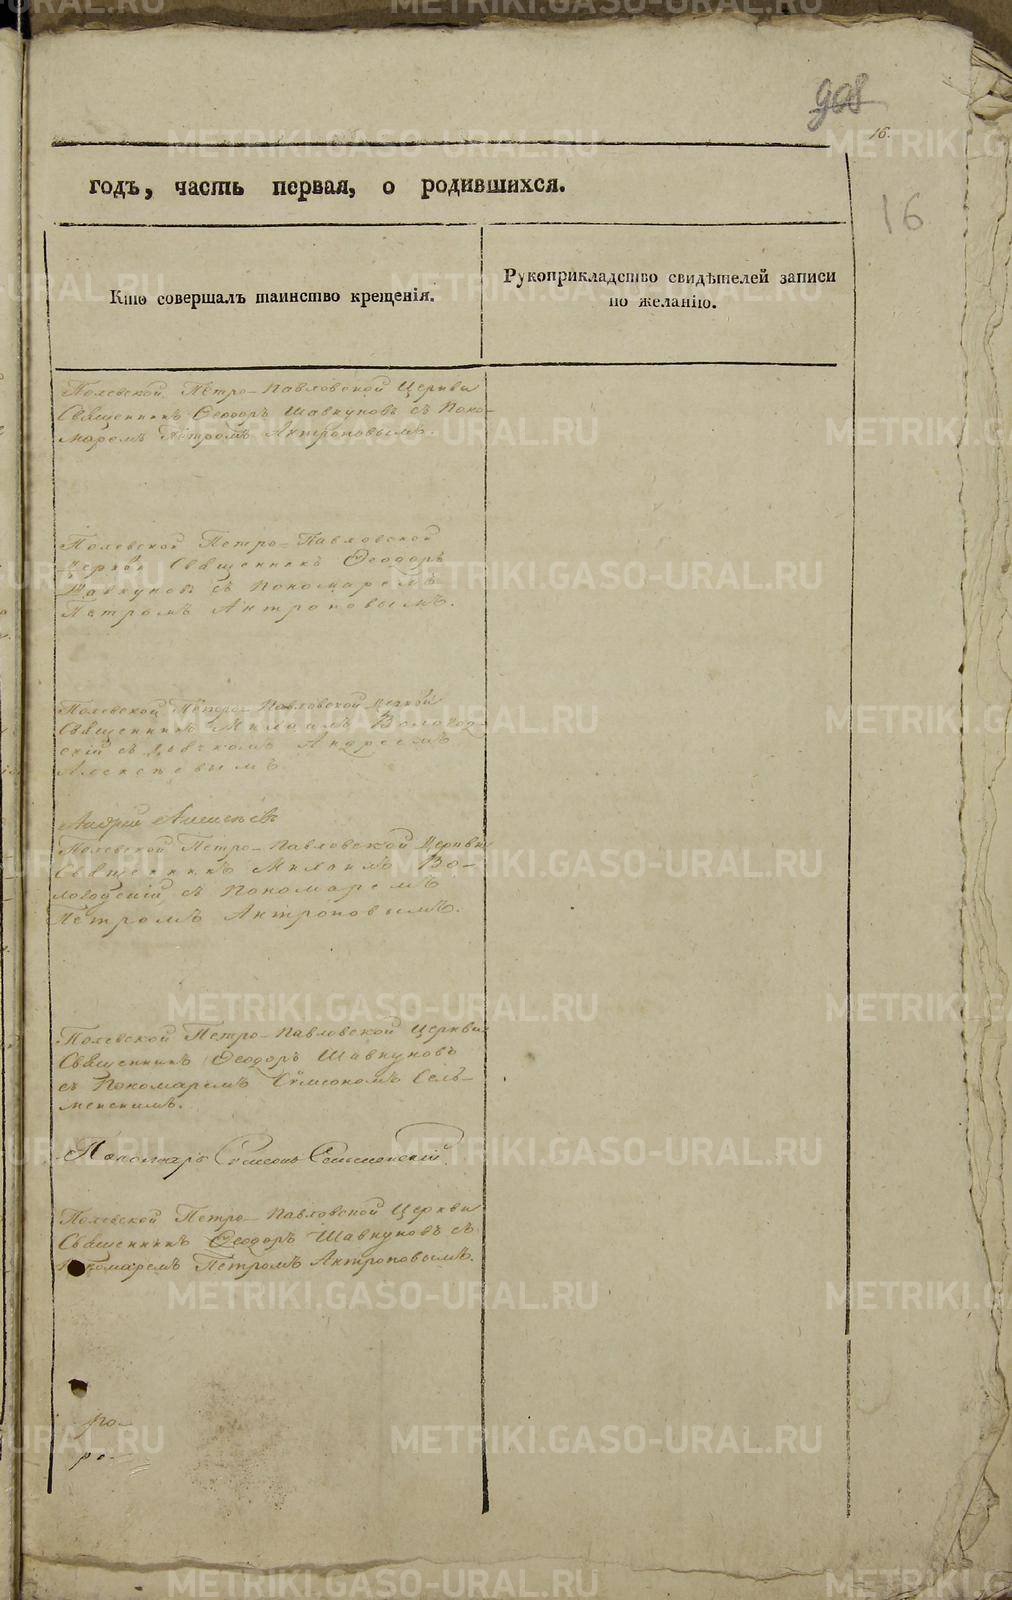 908
16.
16
годъ, часть первая, о родившихся.
Кто совершалъ таинство крещенія.
Рукоприкладство свидѣтелей записи
по желанію.
Полевской Петро-Павловской Церкви
Священникъ Ѳеодоръ Шавкуновъ съ Поно-
маремъ Петромъ Антроповымъ.
Полевской Петро-Павловской
Церкви Священникъ Ѳеодоръ
Шавкуновъ съ Пономаремъ
Петромъ Антроповымъ.
Полевской Петро-Павловской Церкви
Священникъ Михаилъ Вологод-
скій съ Дьячкомъ Андреемъ
Алексѣевымъ
Андрей Алексѣевъ
Полевской Петро-Павловской Церкви
Священникъ Михаилъ Во-
логодскій съ Пономаремъ
Петромъ Антроповымъ.
Полевской Петро-Павловской Церкви
Священникъ Ѳеодоръ Шавкуновъ
съ Пономаремъ Сѵмеономъ Сель-
менскимъ.
Пономарь Сѵмеонъ Сельменскій
Полевской Петро-Павловской Церкви
Священникъ Ѳеодоръ Шавкуновъ съ
Пономаремъ Петромъ Антроповымъ.
ро-
ро-
METRIKI.GASO-URAL.RU